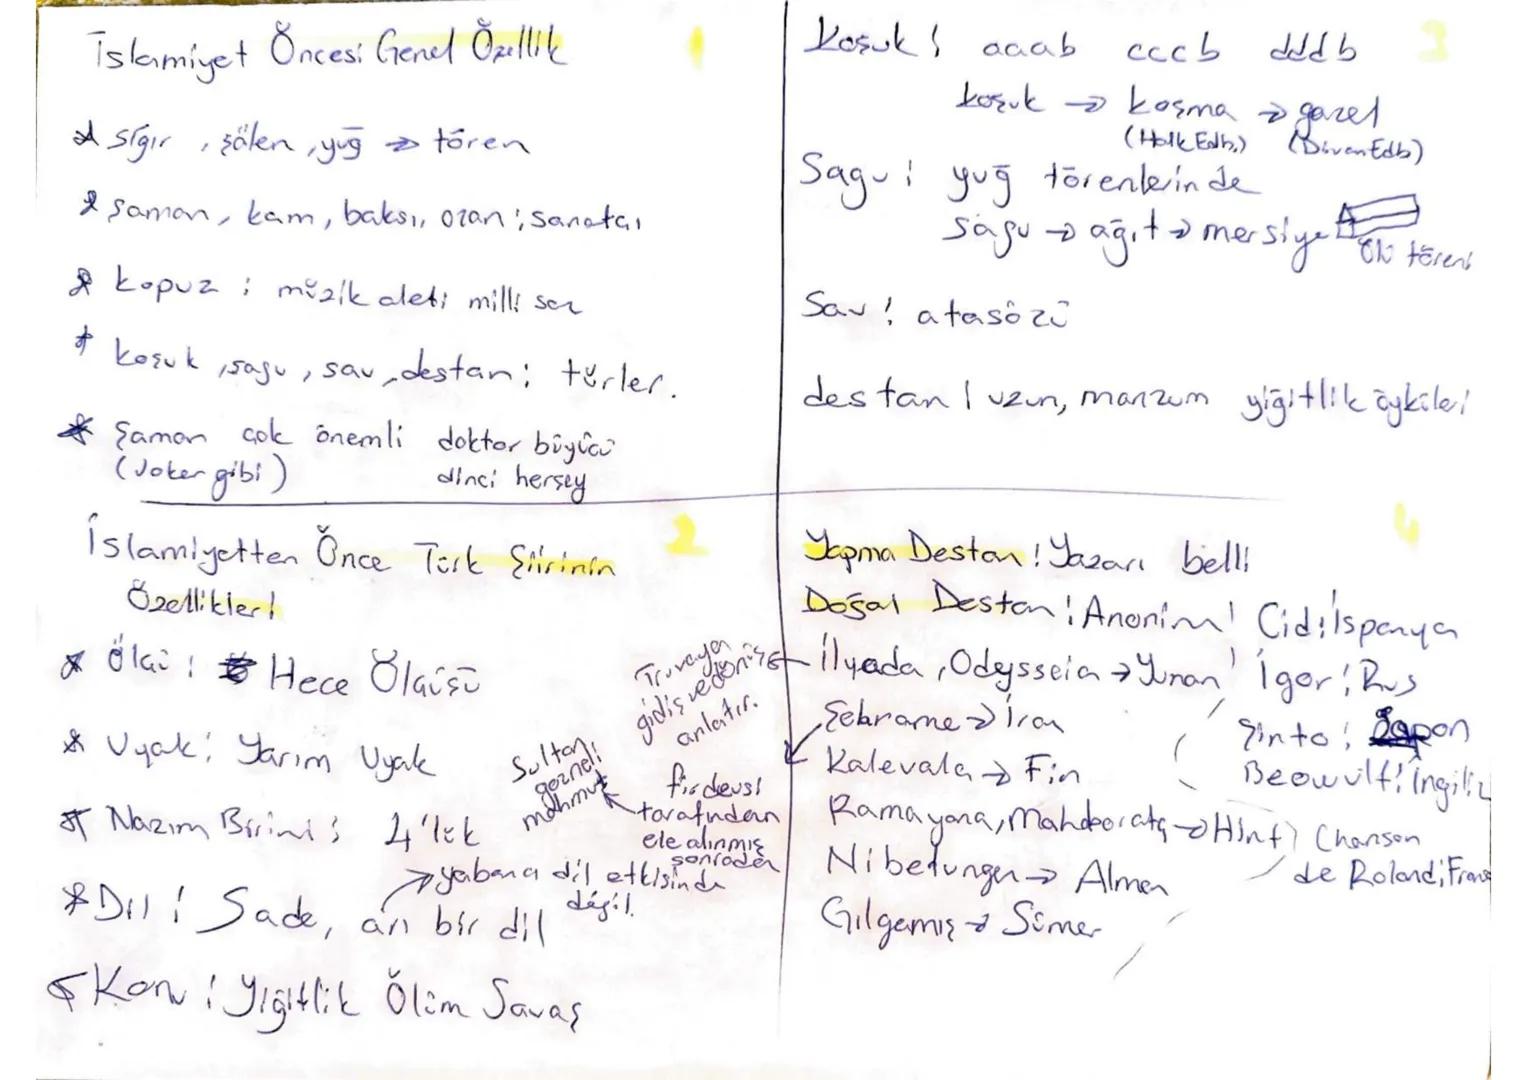 İslamiyet Öncesi Genel Özellik 1
* sığır, şölen, yuğ → tören
* şaman, kam, baksı, ozan; sanatçı
* kopuz; müzik aleti milli saz
* koşuk, sagu, sav, destan; türler.
* Şaman çok önemli doktor büyücü
(Joker gibi) dinci herşey
İslamiyetten Önce Türk Şiirinin 2
Özellikleri
* Ölçü: Hece Ölçüsü
* Uyak: Yarım Uyak
* Nazım Birimi; 4'lük
* Dil: Sade, arı bir dil
→ yabancı dil etkisinde
değil.
* Konu: Yiğitlik Ölüm Savaş
Koşuk: aaab cccb dddb 3
koşuk → koşma → gazel
(Halk Edb.) (Divan Edb)
Sagu: yuğ törenlerinde
sagu → ağıt → mersiye
ölü töreni
Sav: atasözü
destan: uzun, manzum yiğitlik öyküleri
4
Yapma Destan: Yazarı belli
Doğal Destan: Anonim
İlyada, Odysseia → Yunan
Truvaya
gidiş ve dönüş
anlatır.
Şehname → İran
firdevsi
tarafından
ele alınmış
sonradan
Sultan
gazneli
mahmut
Kalevala → Fin
Ramayana, Mahabarata → Hint
Nibelungen → Alman
Gılgamış → Sümer
Cid: İspanya
İgor: Rus
Şinto: Japon
Beowulf: İngiliz
Chanson
de Roland: Frans